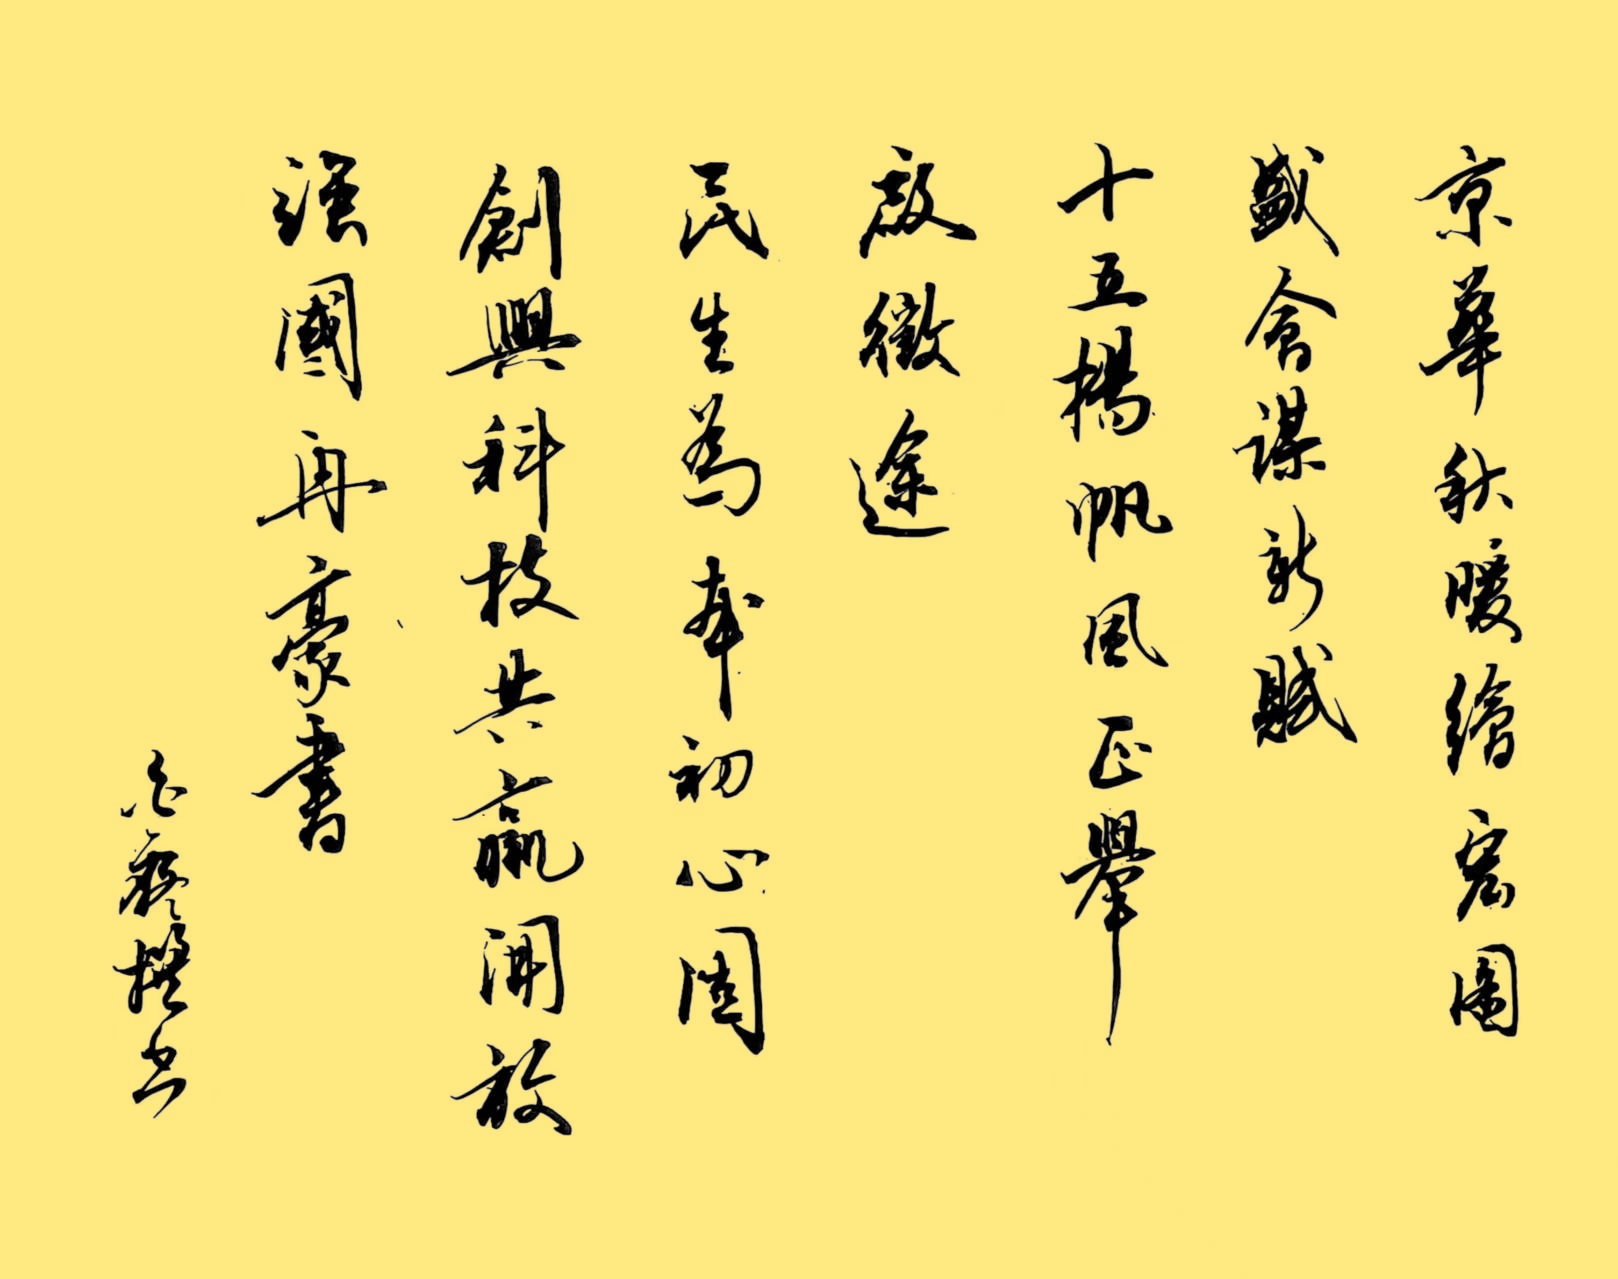 京華秋暖繪宏圖
盛會謀新賦
十五揚帆風正舉
啟徵途
民生為本初心固
創興科技共贏開放
強國再豪書
撰书